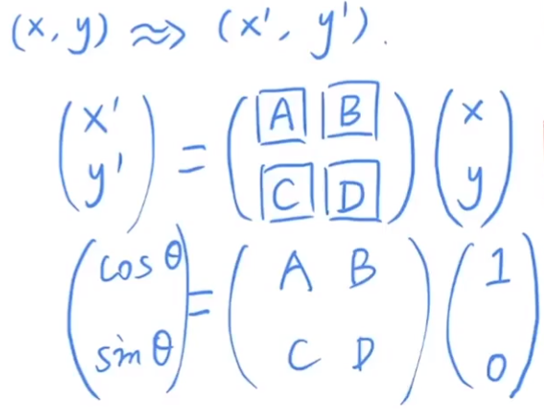 (x, y) ⇝ (x', y').
(x' y') = (A B C D) (x y)
(cos θ sin θ) = (A B C D) (1 0)